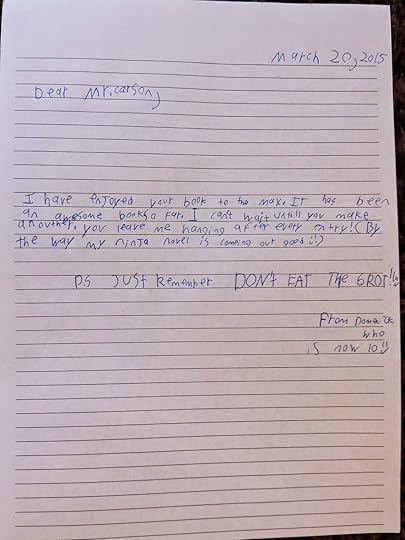 March 20, 2015
Dear Mr. Carson,
I have enjoyed your book to the max. It has been
an awesome book so far. I can't wait untill you make
anouther, you leave me hanging after every entry! (By
the way my ninja novel is comeing out good!!:)
PS Just Remember DON'T EAT THE GROT!!
From
who
is now 10!!